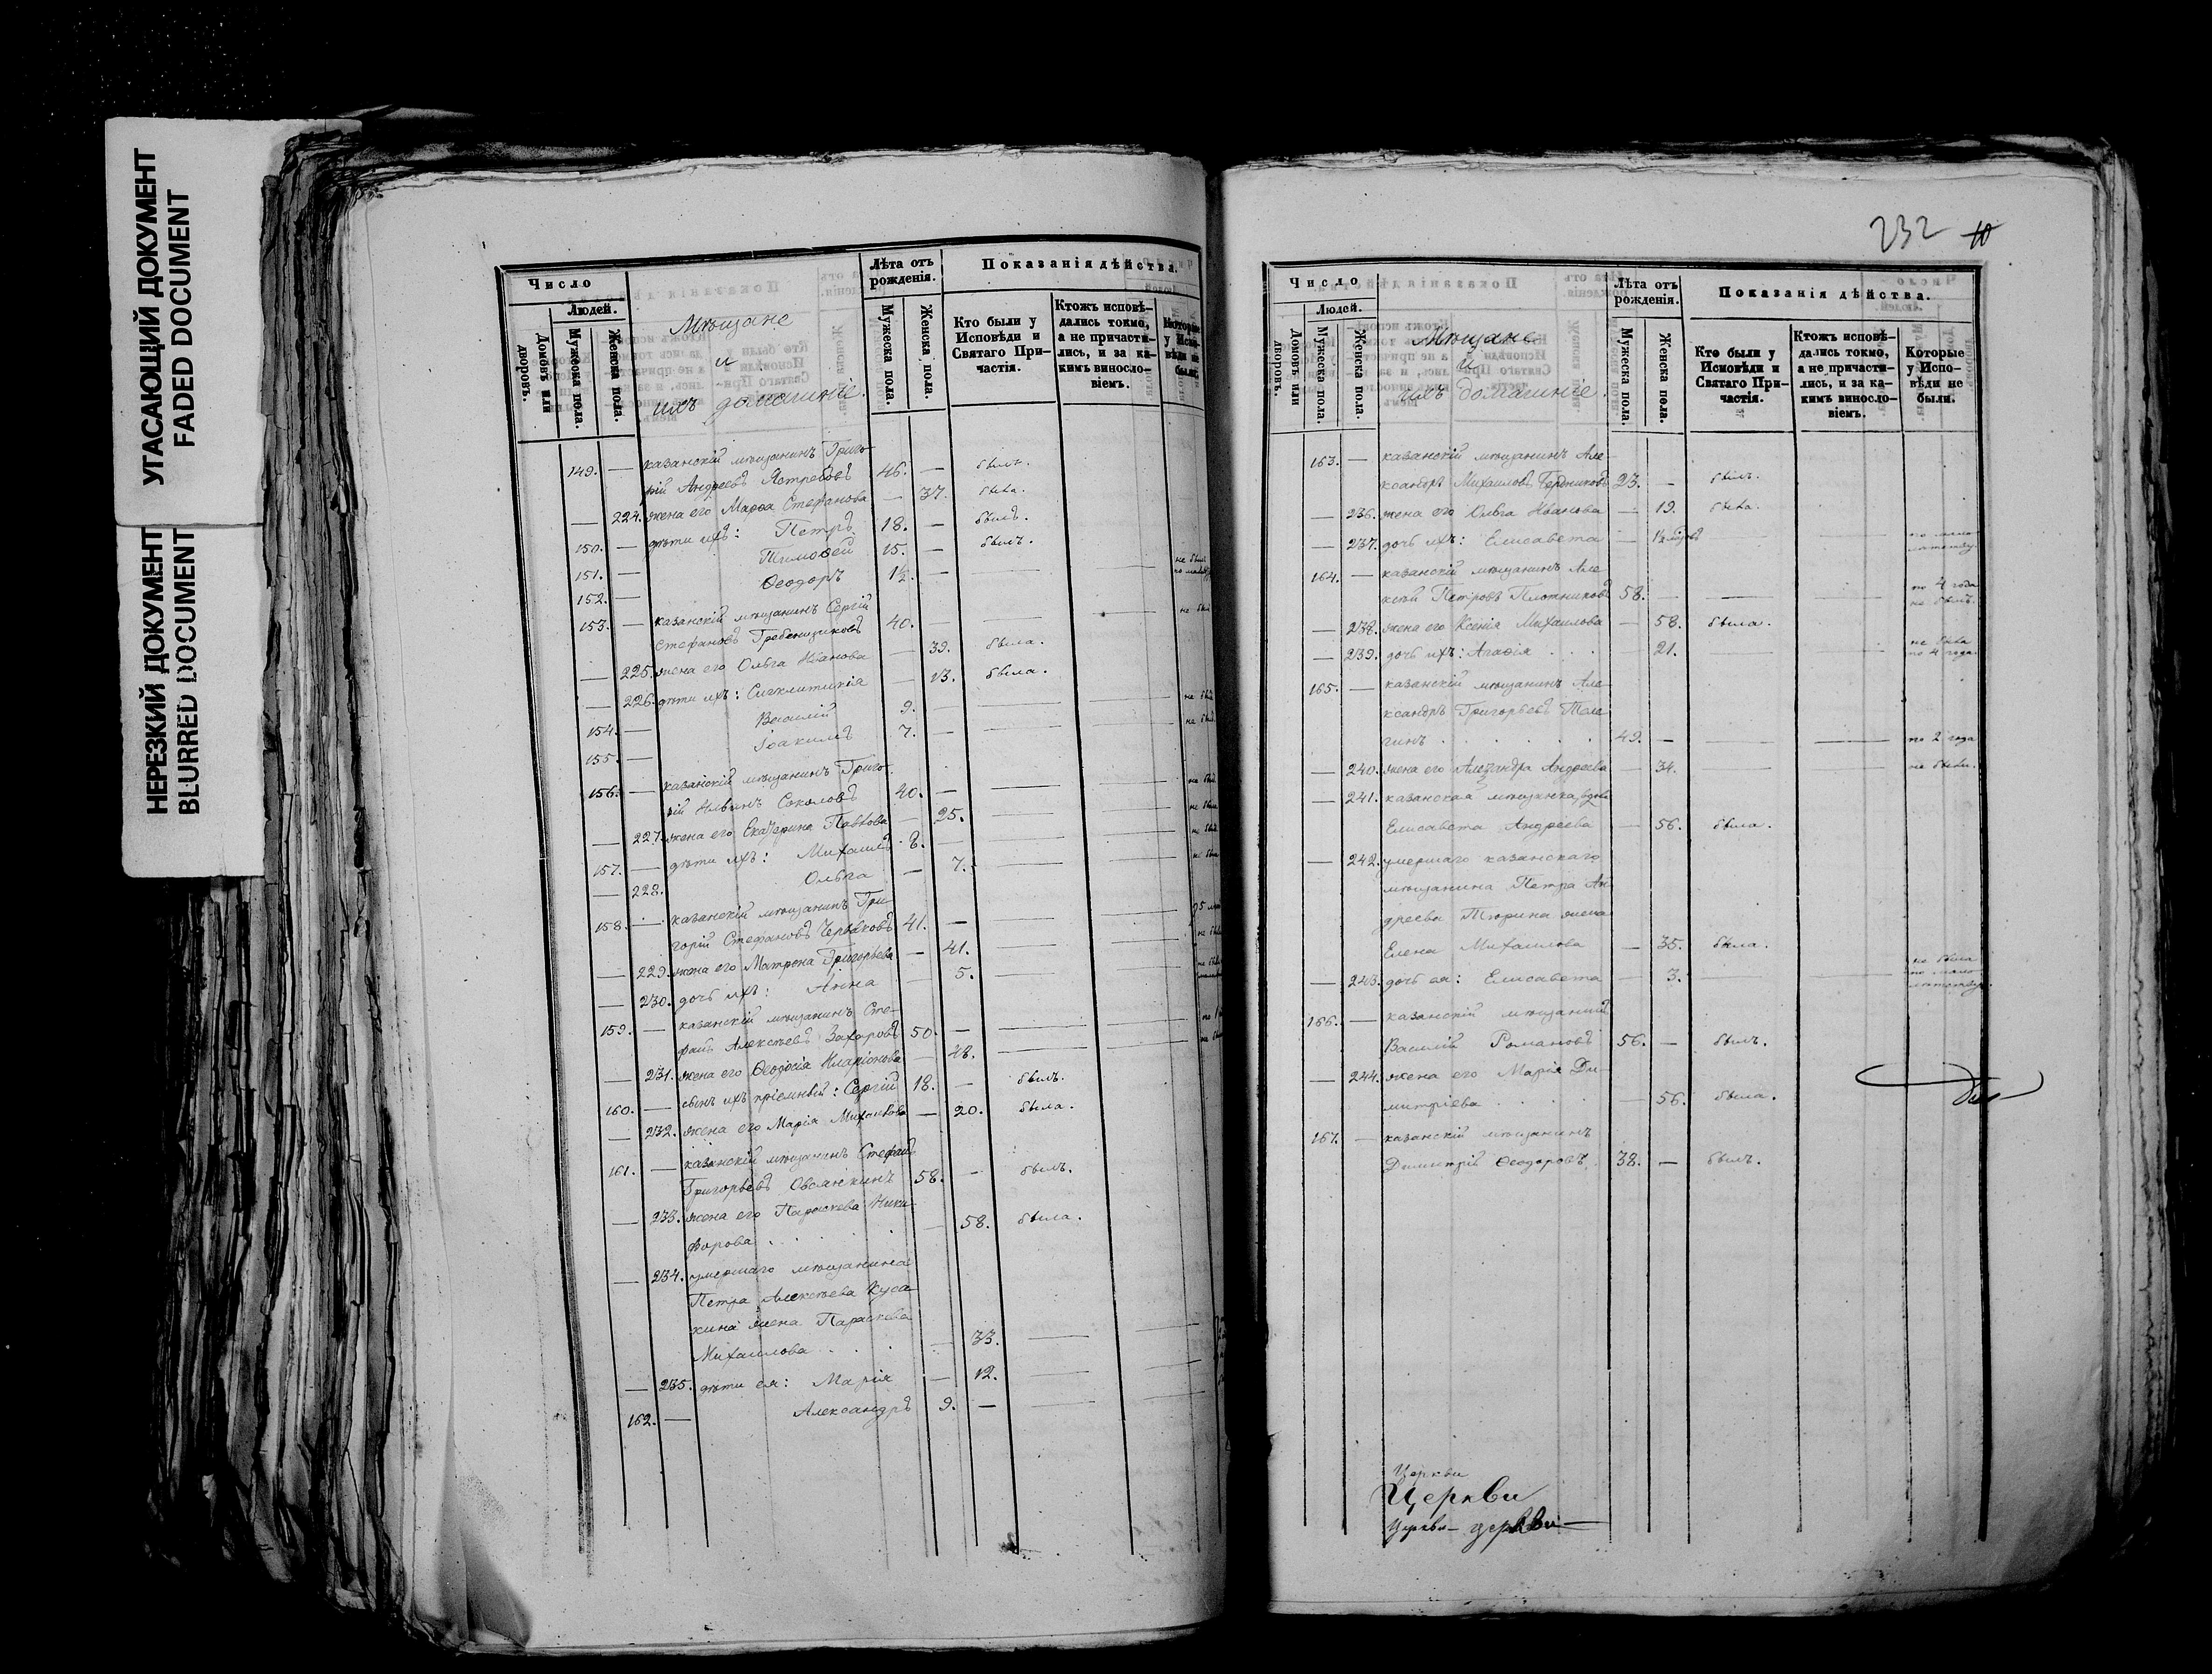 УГАСАЮЩИЙ ДОКУМЕНТ
FADED DOCUMENT
НЕРЕЗКИЙ ДОКУМЕНТ
BLURRED DOCUMENT
Число
Людей.
Домовъ или дворовъ.
Мужеска пола.
Женска пола.
Мѣщане
и
ихъ домашніе.
Лѣта отъ рожденія.
Мужеска пола.
Женска пола.
Показанія дѣйства.
Кто были у Исповѣди и Святаго Причастія.
Ктожъ исповѣдались токмо, а не причастились, и за какимъ винословіемъ.
Которые у Исповѣди не были.
149. — казанскій мѣщанинъ Григо-
рій Андреевъ Ястребовъ 46. — былъ.
— 224. жена его Марѳа Стефанова — 37. была.
150. — дѣти ихъ: Петръ 18. — былъ.
151. — Тимоѳей 15. — былъ.
152. — Ѳеодоръ 1½. — не былъ
153. — казанскій мѣщанинъ Сергій
Стефановъ Гребенщиковъ 40. — не был
— 225. жена его Ольга Иванова — 39. была.
— 226. дѣти ихъ: Сигклитикія — 13. была.
154. — Василій 9. — не был
155. — Іоакимъ 7. — не был.
156. — казанскій мѣщанинъ Григо-
рій Ильинъ Соколовъ 40. — не был.
— 227. жена его Екатерина Павлова — 25. не была
157. — дѣти ихъ: Михаилъ 8. — не был
— 228. Ольга — 7. не была
158. — казанскій мѣщанинъ Гри-
горій Стефановъ Черваковъ 41. —
— 229. жена его Матрона Григорьева — 41.
— 230. дочь ихъ: Анна — 5.
159. — казанскій мѣщанинъ Сте-
фанъ Алексѣевъ Захаровъ 50. —
— 231. жена его Ѳеодосія Иларіонова — 48.
160. — сынъ ихъ пріемный: Сергій 18. — былъ.
— 232. жена его Марія Михаилова — 20. была.
161. — казанскій мѣщанинъ Стефанъ
Григорьевъ Овсянкинъ 58. — былъ.
— 233. жена его Параскева Ники-
форова — 58. была.
— 234. умершаго мѣщанина
Петра Алексѣева Куса-
кина жена Параскева
Михаилова — 33.
— 235. дѣти ея: Марія — 12.
162. — Александръ 9. —
232 10
Число
Людей.
Домовъ или дворовъ.
Мужеска пола.
Женска пола.
Мѣщане
и
ихъ домашніе.
Лѣта отъ рожденія.
Мужеска пола.
Женска пола.
Показанія дѣйства.
Кто были у Исповѣди и Святаго Причастія.
Ктожъ исповѣдались токмо, а не причастились, и за какимъ винословіемъ.
Которые у Исповѣди не были.
163. — казанскій мѣщанинъ Але-
ксандръ Михаиловъ 23. — былъ.
— 236. жена его Ольга Иванова — 19. была.
— 237. дочь ихъ: Елисавета — по мало-
лѣтству
164. — казанскій мѣщанинъ Але-
ксѣй Петровъ Плотниковъ 58. — по 4 года
не былъ.
— 238. жена его Ксенія Михаилова — 58. была.
— 239. дочь ихъ: Агаѳія — 21. не была
по 4 года.
165. — казанскій мѣщанинъ Але-
ксандръ Григорьевъ Теле-
гинъ 49. — по 2 года
— 240. жена его Александра Андреева — 34. не были.
— 241. казанская мѣщанка, вдова
Елисавета Андреева — 56. была.
— 242. умершаго казанскаго
мѣщанина Петра Ан-
дреева Тюрина жена
Елена Михаилова — 35. была.
— 243. дочь ея: Елисавета — 3. не была
по мало-
лѣтству.
166. — казанскій мѣщанинъ
Василій Романовъ 56. — былъ.
— 244. жена его Марія Ди-
митріева — 56. была.
167. — казанскій мѣщанинъ
Димитрій Ѳеодоровъ 38. — былъ.
Церкви
Церкви
Церкви — церкви